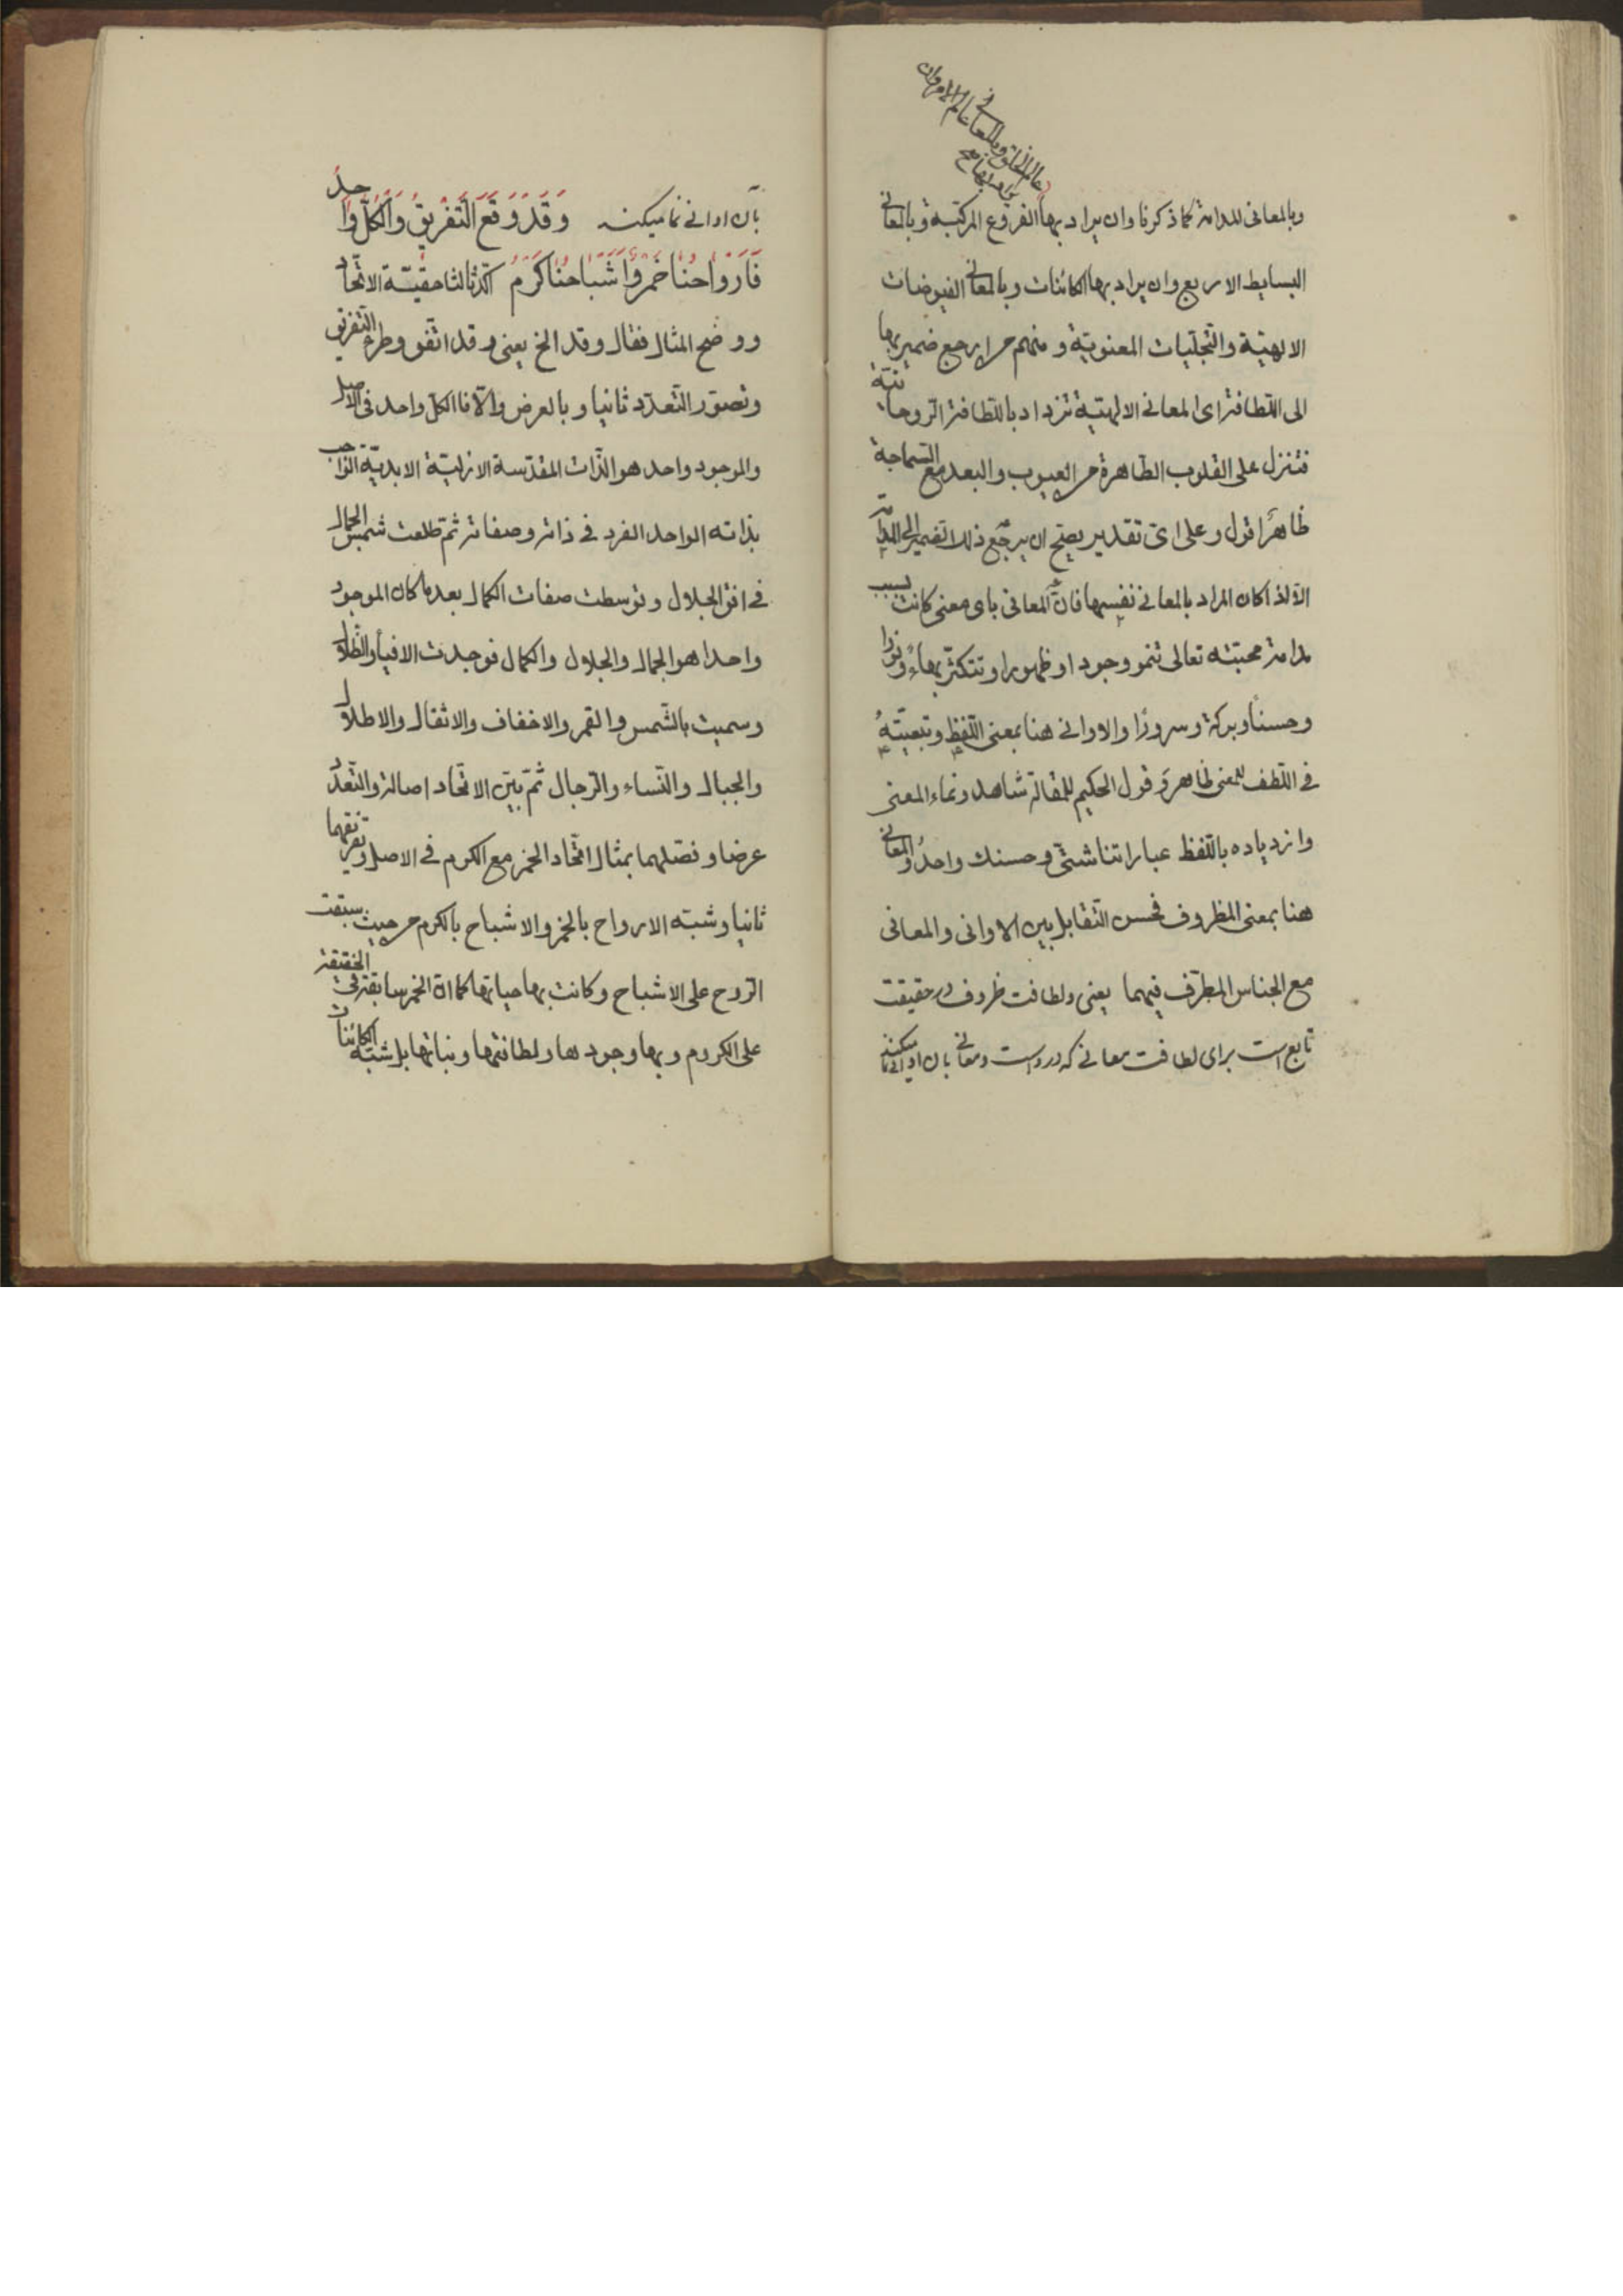 عالم الخلق وبالمعانى عالم الامر وان
يراد بها
وبالمعانى المدامة كما ذكرنا وان يراد بها الفروع المركبة وبالمعانى
البسايط الاربع وان يراد بها الكائنات وبالمعانى الفيوضات
الالهية والتجليات المعنوية ومنهم من يرجع ضمير بها
الى اللطافة اى المعانى الالهية تزداد باللطافة الروحانية
فتنزل على القلوب الطاهرة من العيوب والبعد مع السماجة
ظاهر اقول وعلى اى تقدير يصح ان يرجع ذلك الضمير الى المدامة
الا اذا كان المراد بالمعانى نفسها فان المعانى باى معنى كانت بسبب
مدامة محبته تعالى تنمو وجودا وظهورا وتتكثر بهاء ونورا
وحسنا وبركة وسرورا والاوانى هنا بمعنى اللفظ وتبعيته
فى اللطف للمعنى ظاهر وقول الحكيم للمقالة شاهد ونماء المعنى
وازدياده باللفظ عباراتنا شتى وحسنك واحد والمعانى
هنا بمعنى المظروف فحسن التقابل بين الاوانى والمعانى
مع الجناس المطرف فيهما يعنى ولطافت ظروف در حقيقت
تابع است براى لطافت معانى كه در دست ومعانى بان اوانى نما ميكند
بآن اوانى نما ميكند وَقَدْ وَقَعَ التَّفْرِيقُ وَالْكُلُّ وَاحِدٌ
فَأَرْوَاحُنَا خَمْرٌ وَأَشْبَاحُنَا كَرْمُ اكد ثالثا حقيّة الاتحاد
ووضح المثال فقال وقد الخ يعنى وقد اتفق وطرء التفريق
وتصور التعدد ثانيا وبالعرض والا فالكل واحد فى الاصل
والموجود واحد هو الذات المقدسة الازلية الابدية الواجب
بذاته الواحد الفرد فى ذاته وصفاته ثم طلعت شمس الجمال
فى افق الجلال وتوسطت صفات الكمال بعد ما كان الموجود
واحدا هو الجمال والجلال والكمال فوجدت الافياء والظلال
وسميت بالشمس والقمر والاخفاف والاثقال والاطلال
والجبال والنساء والرجال ثم بيّن الاتحاد اصالة والتعدد
عرضا وفصلهما بمثال اتحاد الخمر مع الكرم فى الاصل وتفرقهما
ثانيا وشبه الارواح بالخمر والاشباح بالكرم من حيث سبقت
الروح على الاشباح وكانت بها حياتها كما ان الخمر سابقة فى الحقيقة
على الكروم وبها وجودها ولطافتها ونباتها بل شبه الكائنات